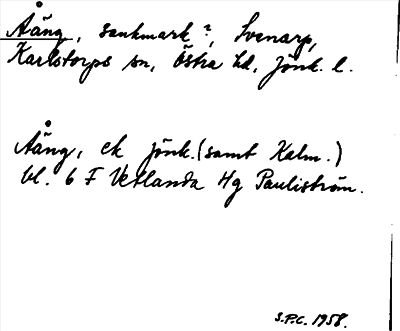 Åäng, sankmark?, Svenarp,
Karlstorps sn, Östra hd, Jönk. l.
Åäng, ek Jönk. (samt Kalm.)
bl. 6 F Vetlanda Hg Pauliström.
S.P.C. 1958.